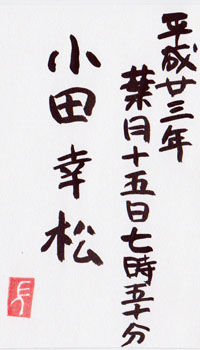 平成廿三年
葉月十五日七時五十分
小田幸松